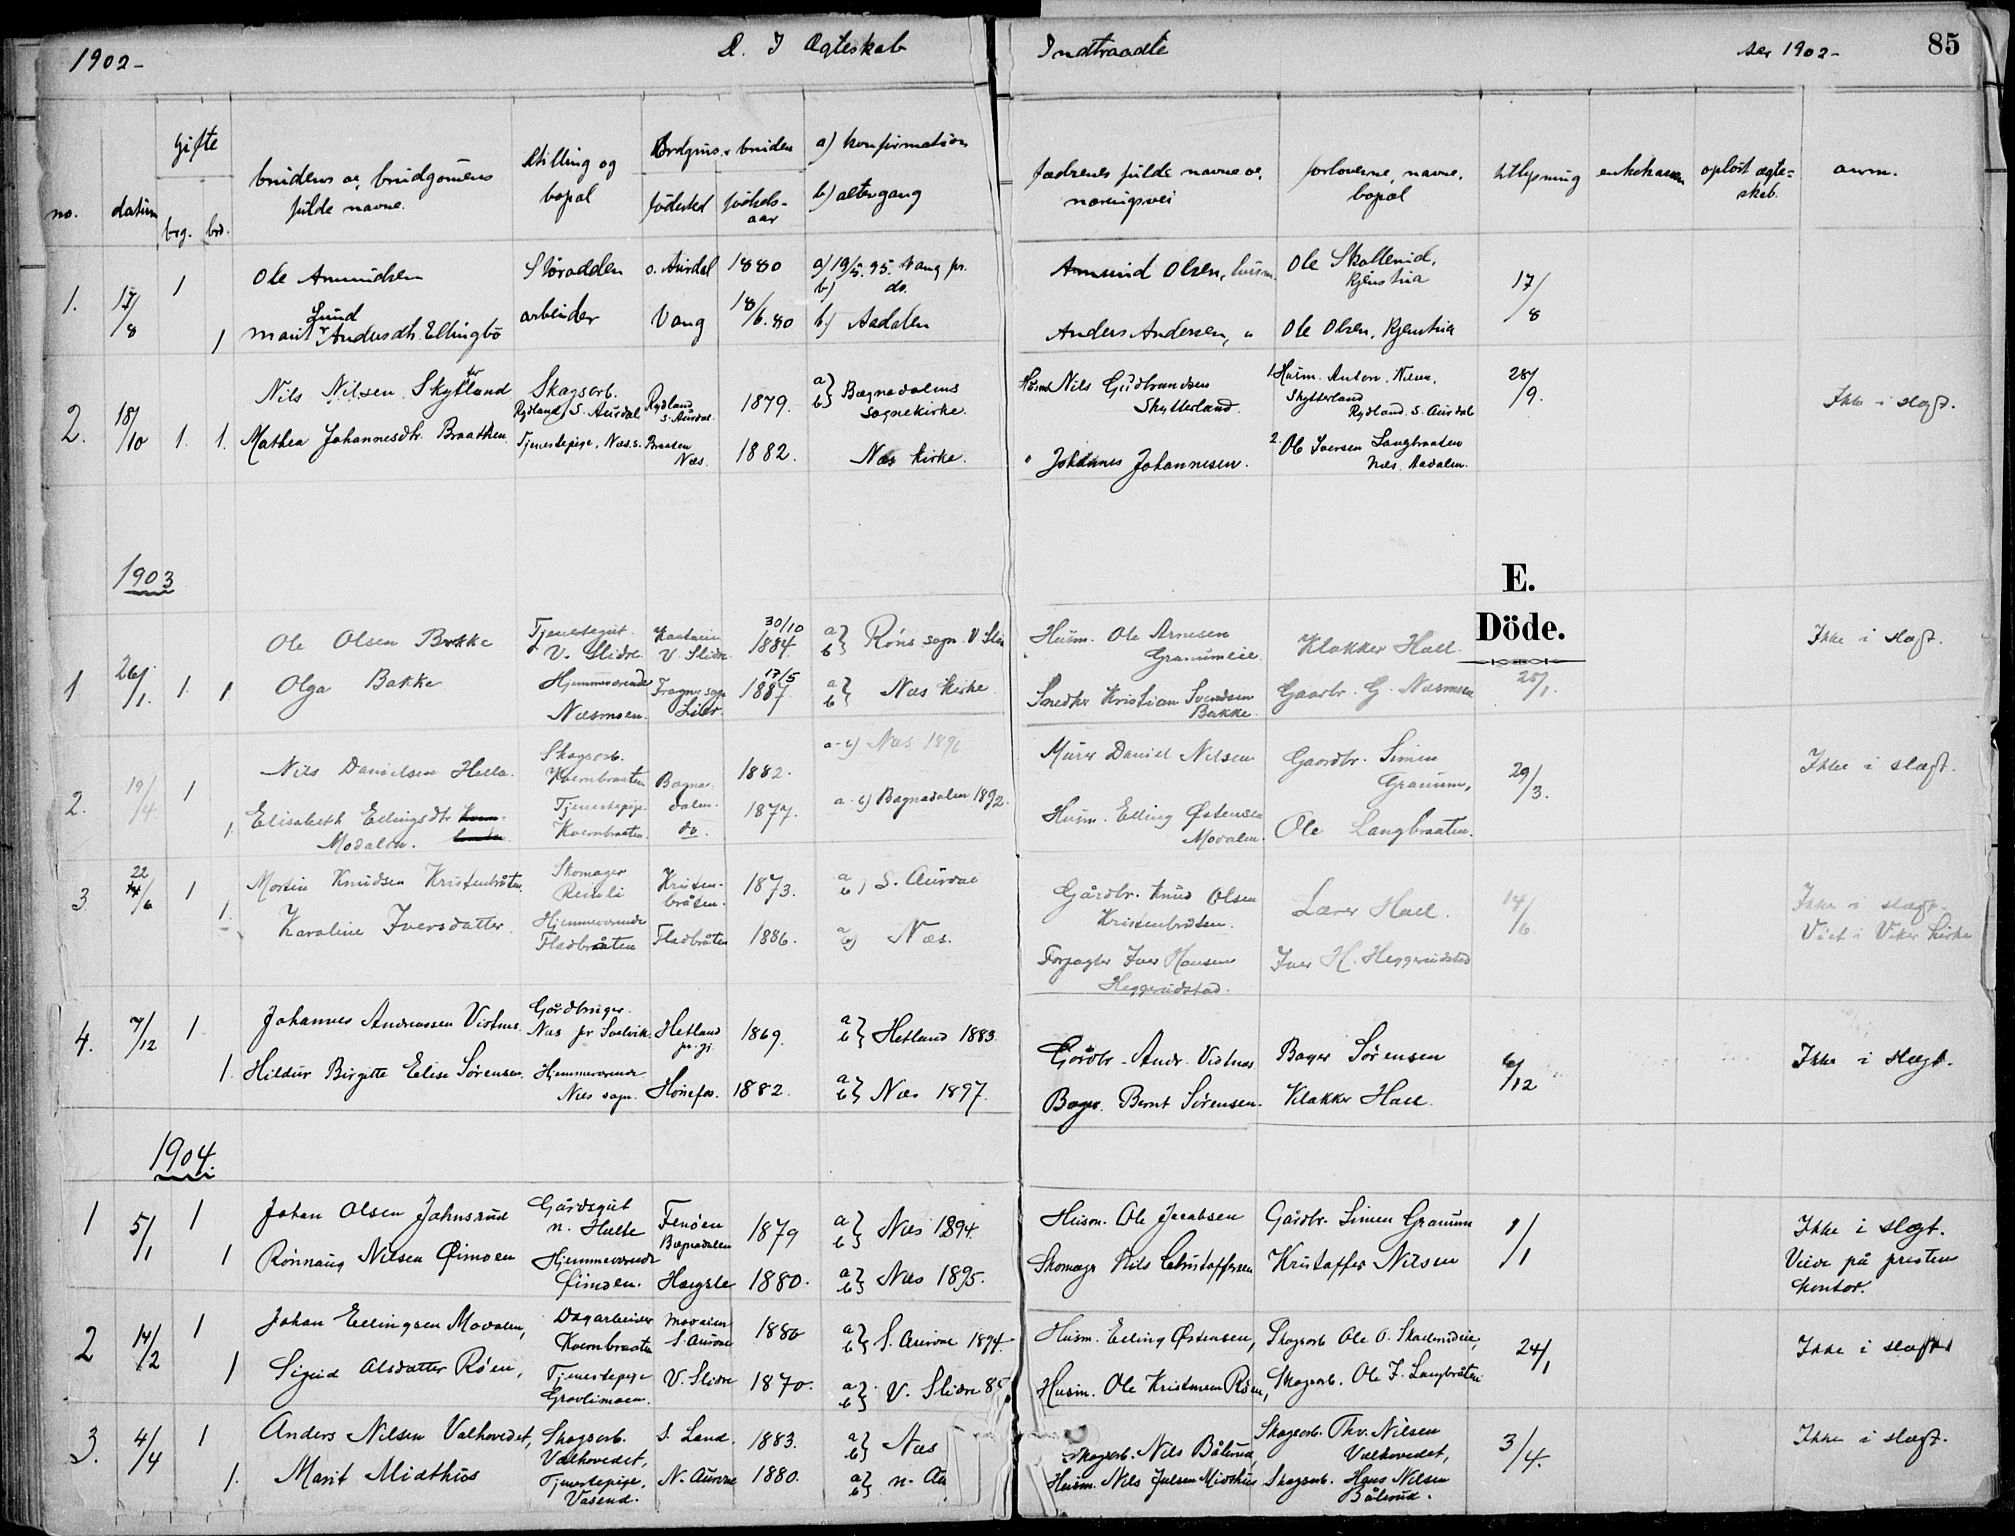 1902-
D. I Ægteskab
Indtraadte
1902-
85
no.
datum
Gifte
brg.
brd.
brudens og brudgomens
fulde navne.
Stilling og
bopæl
Brdgms. bruden
födested
födsels-
aar
a) konfirmation
b) altergang
fædrenes fulde navne og
næringsvei
forloverne, navne,
bopæl
Utlysning
opløst ægte-
skab.
anm.
1.
17/8
1
Ole Amundsen
Storodden
1880
a) 19/5. 95. Vang pr.
b) do.
Amund Olsen, husm.
Ole Skollerud,
17/8
1
Lund
Marit Andersdt. Ellingbø
arbeider
Vang
18/6.80
b) Aadalen
Anders Andersen, "
Ole Olsen,
2.
18/10
1.
Nils Nilsen Skytterland
Skogsarb.
Rydland, S. Aurdal
Rydland
S. Aurdal.
1879.
a) b) Bægnadalens
sognekirke.
Husmd Nils Gudbrandsen
Skytterland.
1 Husm. Anton Nilsen,
Skytterland
Rydland. S. Aurdal
28/9.
Ikke i slægt.
1.
Mathea Johannesdtr. Braathen
Tjenestepige, Næs s.
Braaten
Næs.
1882.
Næs kirke.
" Johannes Johannesen.
2. Ole Iversen Langbraaten
Næs, Aadalen.
1903
E.
Döde.
1
26/1.
1.
Ole Olsen Bakke
Tjenestegut
V. Slidre
V. Slidre
30/10
1884
a) b) Röns sogn. V Sli
Husm. Ole Arnesen
Granumeie
Klokker Hall.
Ikke i slægt.
1.
Olga Bakke
Hjemmeværende
Næsmoen.
Fragner sogn
Lier.
17/5
1887.
a) b) Næs Kirke
Snedker Kristian Svendsen
Bakke.
Gaardbr. G. Næsmoen
25/1.
2.
19/4.
1
Nils Danielsen Hella.
Skogsarb.
Kvernbraaten
Bagna-
dalen.
1882.
a-b) Næs 1896
Murer Daniel Nilsen
Gaardbr. Simen
Granum,
29/3.
Ikke i slægt.
1.
Elisabeth Ellingsdtr.
Modalen.
Tjenestepige.
Kvernbraaten.
do.
1877.
a-b) Bagnadalen 1892.
Husm. Elling Østensen
Modalen.
Ole Langbraaten.
3
22/6
1
Martin Knudsen Kristenbråten
Skomager
Kristen-
bråten.
1873.
a b) S. Aurdal
Gårdbr. Knud Olsen
Kristenbråten.
Lærer Hall.
14/6
Ikke i slægt.
Viet i Viker kirke
1.
Karoline Iversdatter
Hjemmeværende
Fladbråten
Fladbråten
1886.
a b) Næs.
Forpagter Iver Hansen
Heggerudstad.
Iver H. Heggerudstad
4.
7/12
1
Johannes Andreassen Vistnes.
Gårdbruger.
Næs pr Svelvik.
Hetland
pr.gj.
1869.
a) b) Hetland 1883.
Gårdbr. Andr. Vistnes
Bager Sørensen
6/12
Ikke i slægt.
1.
Hildur Birgitte Elise Sørensen.
Hjemmeværende
Næs sogn.
Hönefos.
1882.
a) b) Næs 1897.
Bager Bernt Sörensen.
Klokker Hall.
1904
1
5/1
1
Johan Olsen Johnsrud
Gårdsgut
n. Hulte
Fenöen
Bægnadalen
1879
a) b) Næs 1894.
Husm. Ole Jacobsen
Gårdbr. Simen Granum
1/1
Ikke i slægt.
Viede på presten
kontor.
1
Rönnaug Nilsen Öimoen
Hjemmeværende
Öimoen.
1880.
a) b) Næs 1895.
Skomager Nils Christoffersen
Kristoffer Nilsen
2
14/2
1
Johan Ellingsen Modalen,
Dagarbeider
Kvernbraaten
Modalen
S. Aurdal
1880
a) b) S. Aurdal 1894.
Husm. Elling Østensen,
Skogsarb. Ole O. Skollerudeie,
24/1
Ikke i slægt
1
Sigrid Olsdatter Röen,
Tjenestepige
Grovlimoen.
V. Slidre
1870.
a) b) V. Slidre 85
Husm. Ole Kristensen Röen,
Skogsarb. Ole I. Langbråten
3.
4/4
1
Anders Nilsen Valhovedet,
Skogsarb.
Valhovedet,
S. Land.
1883.
a) b) Næs
Skogsarb. Nils Bålerud,
Skogsarb. Thv. Nilsen
Valhovedet,
3/4.
Ikke i slægt.
1.
Marit Midthus
Tjenestepige,
Vasend.
N. Aurdal
1880.
a) b) n. Au
Husm. Nils Julsen Midthus
Skogsarb. Hans Nilsen
Bålerud.